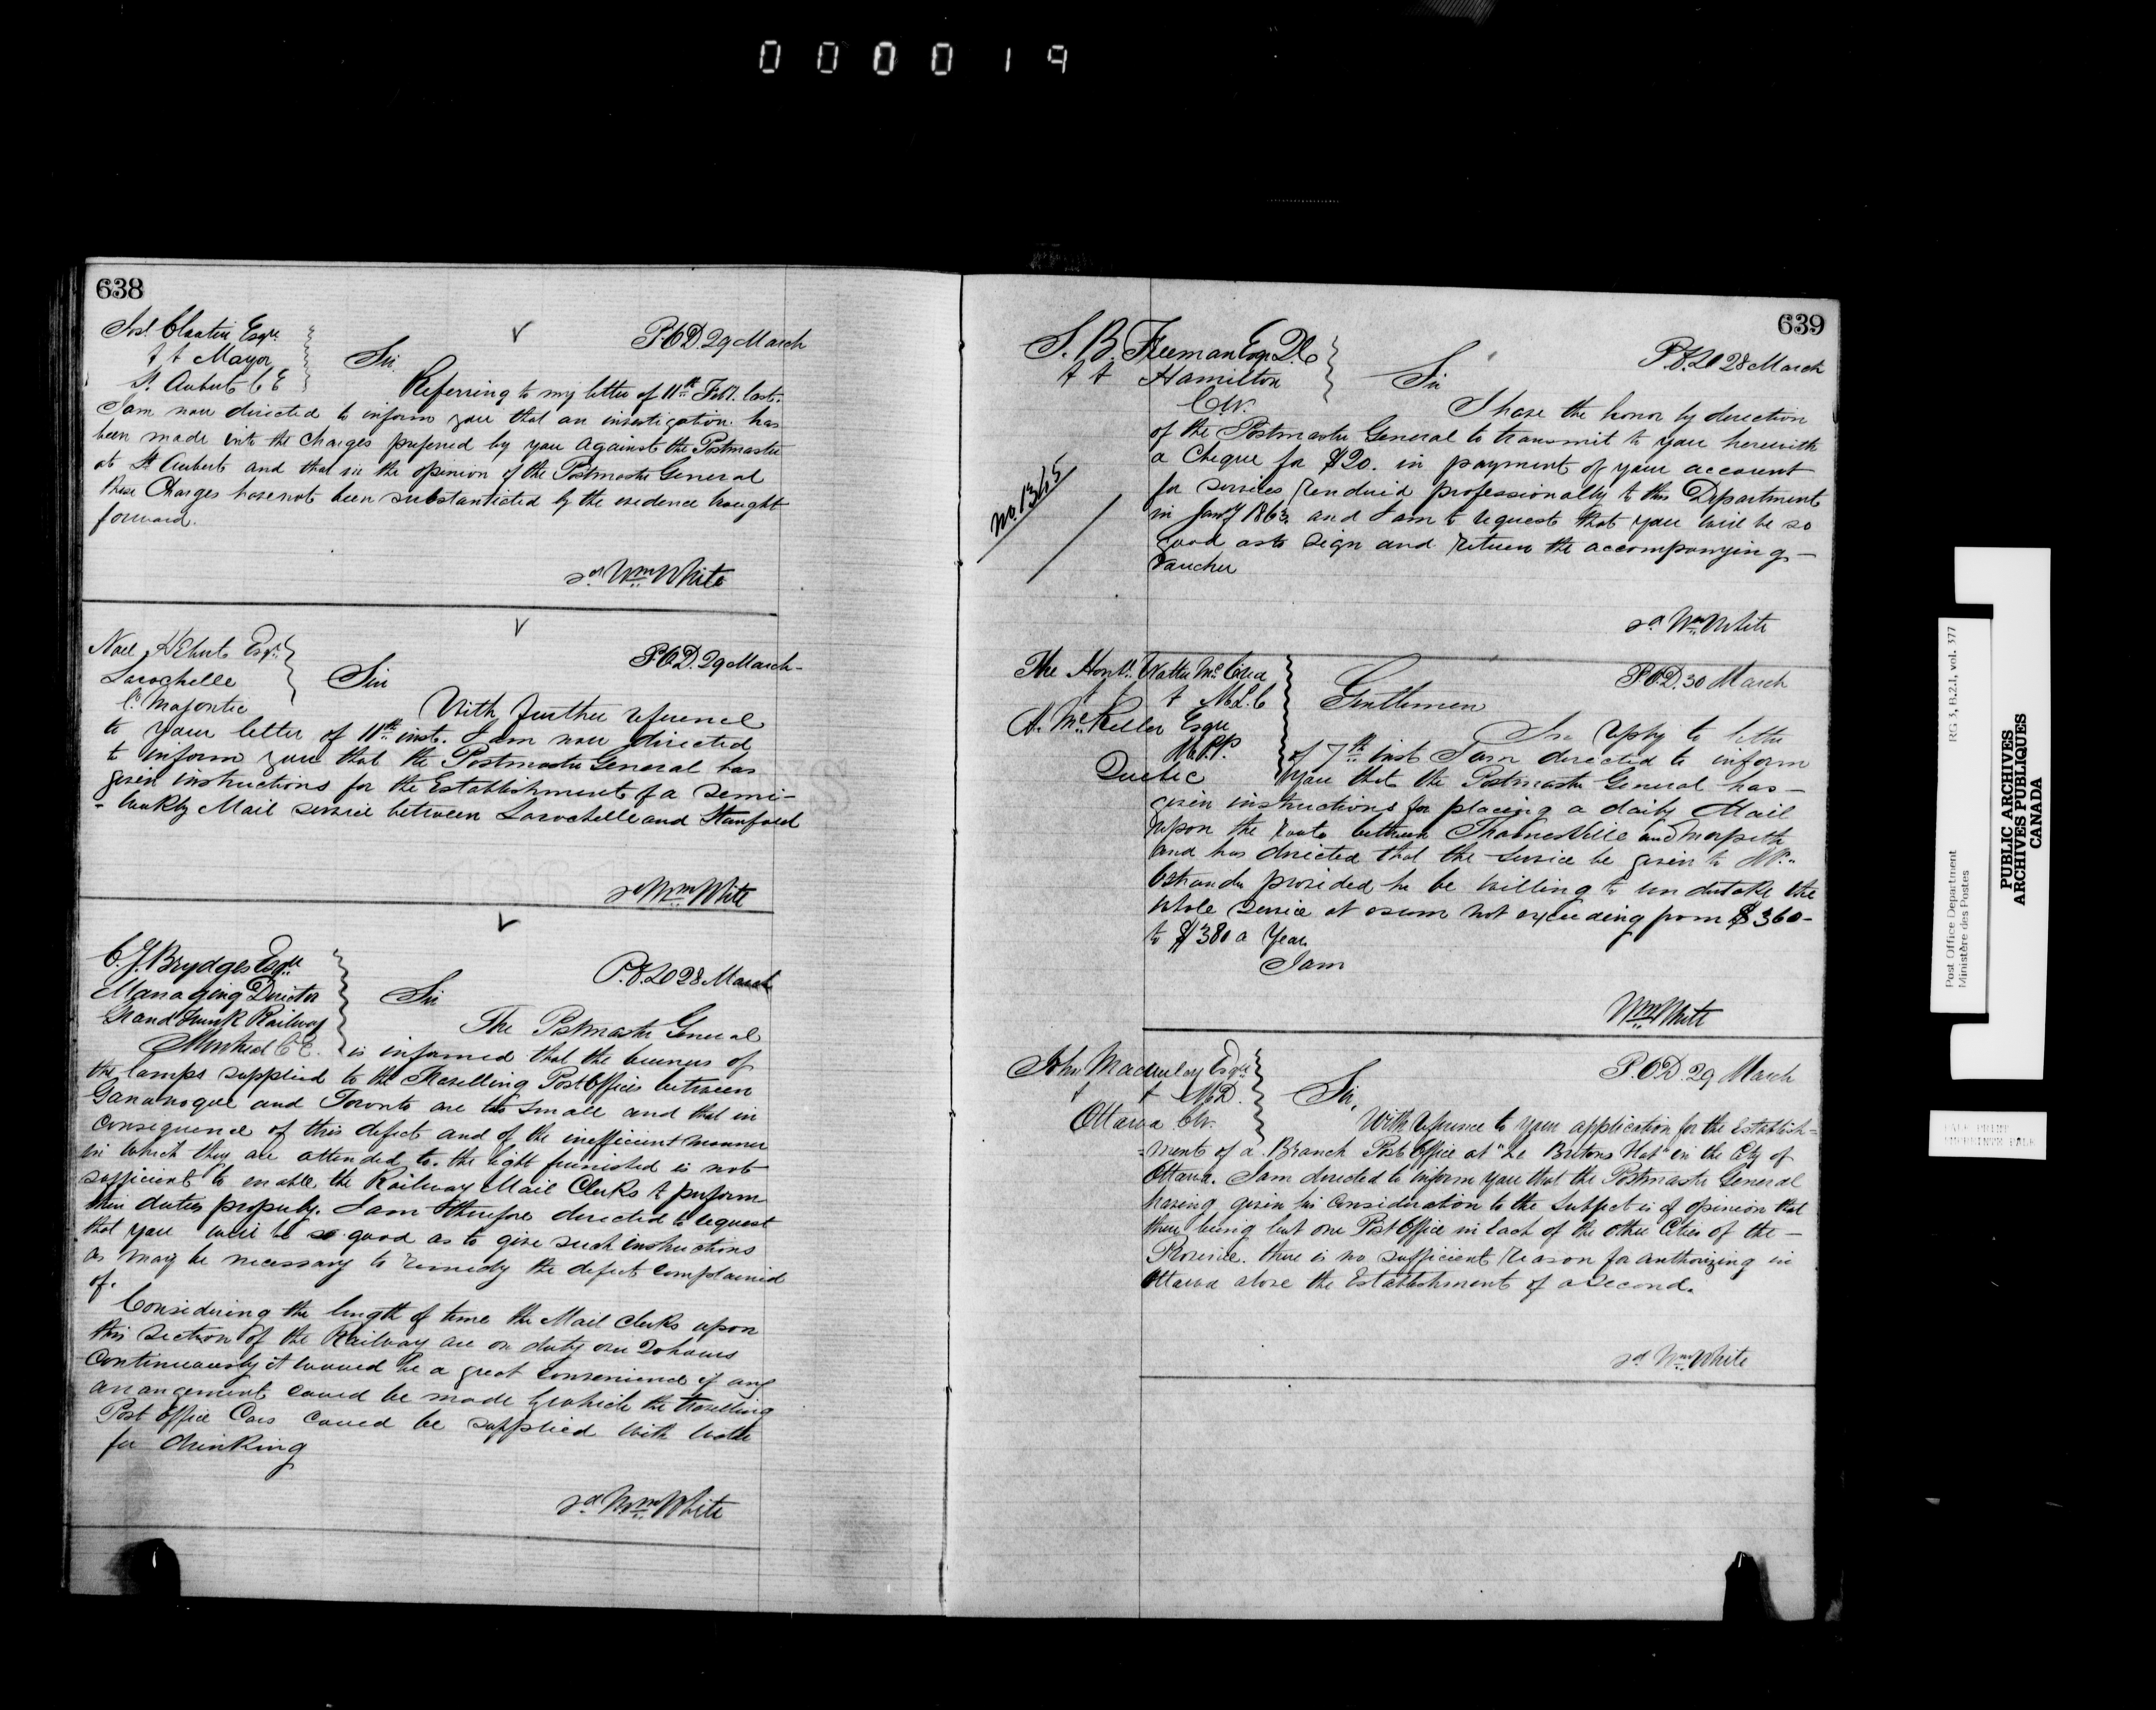 000019
638
Jos. Cloutier, Esqre
P.O.D. 29 March
& & Mayor
St. Aubert C E
Sir.
Referring to my letter of 11th Feby. last.
I am now directed to inform you that an investigation has
been made into the charges preferred by you against the Postmaster
at St Aubert and that in the opinion of the Postmaster General
these Charges have not been substantiated by the evidence brought
forward.
sd Wm White
Noel Hebert Esqr.
P.O.D. 29 March-
Larochelle
Sir
C. Megantic
With further reference
to your letter of 11th inst. I am now directed
to inform you that the Postmaster General has
given instructions for the Establishment of a Semi-
-weekly Mail service between Larochelle and Stanfold
sd Wm White
C. J. Brydges Esqre
P.O.D 28 March
Managing Director
Sir
Grand Trunk Railway
The Postmaster General
Montreal C E.
is informed that the burners of
the lamps supplied to the Travelling Post Offices between
Gananoque and Toronto are too small and that in
consequence of this defect and of the inefficient manner
in which they are attended to, the light furnished is not
sufficient to enable the Railway Mail Clerks to perform
their duties properly. I am therefore directed to request
that you will be so good as to give such instructions
as may be necessary to remedy the defect complained
of.
Considering the length of time the Mail clerks upon
this section of the Railway are on duty over 20 hours
continuously it would be a great convenience if any
arrangement could be made by which the travelling
Post Office Cars could be supplied with water
for drinking
sd Wm White
639
S. B. Freeman Esqr. Q.C
P.O.D 28 March
& & Hamilton
Sir
C.W.
I have the honor by direction
of the Postmaster General to transmit to you herewith
a Cheque for $20. in payment of your account
for services rendered professionally to this Department
in Jany 1863, and I am to request that you will be so
good as to sign and return the accompanying -
Voucher
No. 1365
sd Wm White
The Honble. Walter McCrea
P.O.D. 30 March
& M.L.C
Gentlemen
A. McKellar Esqre
In reply to letter
M.P.P.
of 7th inst I am directed to inform
Quebec
you that the Postmaster General has -
given instructions for placing a daily Mail
upon the route between Thamesville and Morpeth
and has directed that the service be given to Mr.
provided he be willing to undertake the
whole service at a sum not exceeding from $360-
to $380 a Year.
I am
Wm White
John Macaulay Esqre
P.O.D. 29 March
& & M.D.
Sir,
Ottawa C.W.
With reference to your application for the Establish-
-ment of a Branch Post Office at "Le Bretons Flat" in the City of
Ottawa. I am directed to inform you that the Postmaster General
having given his consideration to the subject is of opinion that
there being but one Post Office in each of the other Cities of the -
Province. there is no sufficient reason for authorizing in
Ottawa alone the Establishment of a second.
sd Wm White
Post Office Department
Ministère des Postes
RG 3, B.2.1, vol. 377
PUBLIC ARCHIVES
ARCHIVES PUBLIQUES
CANADA